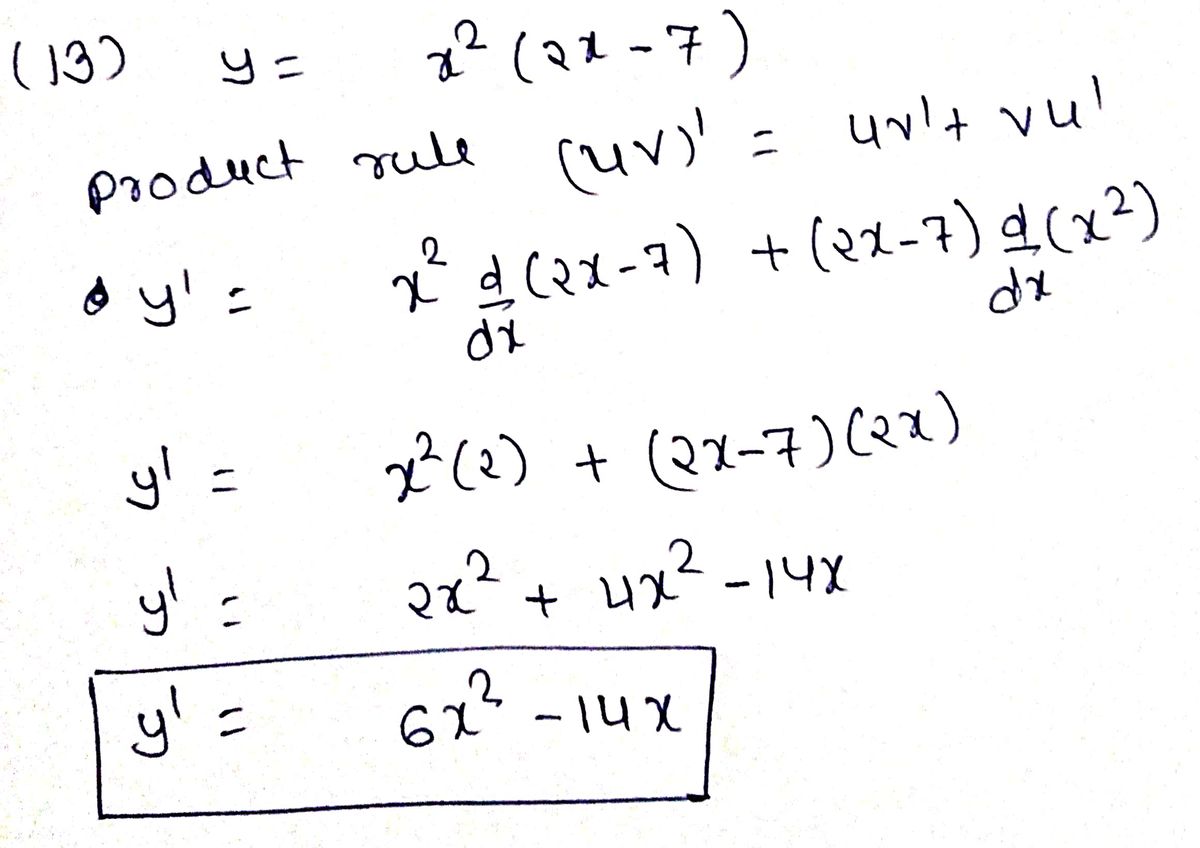 (13) y = x² (2x - 7)
Product rule (uv)' = uv' + vu'
y' = x² d/dx (2x-7) + (2x-7) d/dx (x²)
y' = x²(2) + (2x-7)(2x)
y' = 2x² + 4x² - 14x
y' = 6x² - 14x